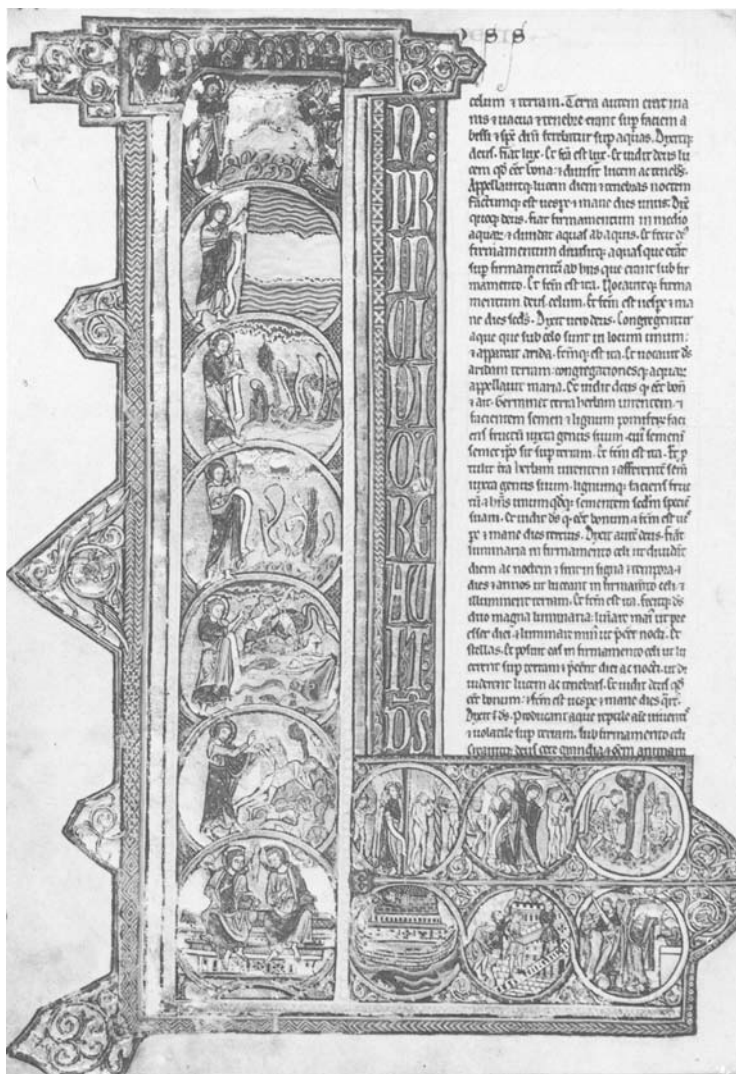 esis
IN
PRIN
CI
PI
O C
RE
AU
IT
DS
celum ⁊ terram. Terra autem erat ina
nis ⁊ uacua ⁊ tenebre erant sup faciem a
bissi ⁊ sps dni ferebatur sup aquas. Dixitq;
deus. fiat lux. Et fca est lux. Et uidit deus lu
cem qd eet bona: ⁊ diuisit lucem ac tenebs.
Appellauitq; lucem diem ⁊ tenebras noctem
factumq; est uespe ⁊ mane dies unus. Dix
quoq; deus. fiat firmamentum in medio
aquaꝝ ⁊ diuidat aquas ab aquis. Et fecit ds
firmamentum diuisitq; aquas que erant
sup firmamentū ab hiis que erant sub fir
mamento. Et fcm est ita. Uocauitq; firma
mentum deus celum. Et fcm est uespe ⁊ ma
ne dies scds. Dixit uero deus. Congregentur
aque que sub celo sunt in locum unum:
⁊ appareat arida. fcmq; est ita. Et uocauit ds
aridam terram: congregationesq; aquaꝝ
appellauit maria. Et uidit deus q eet bon
⁊ ait. Germinet terra herbam uirentem ⁊
facientem semen ⁊ lignum pomiferꝝ faci
ens fructū iuxta genus suum. cui semen
semet ipo sit sup terram. Et fcm est ita. Et p
tulit tra herbam uirentem ⁊ afferente sem
iuxta genus suum. lignumq; faciens fruc
tū ⁊ hns unumqdq; sementem scdm speciē
suam. Et uidit ds q eet bonum ⁊ fcm est ues
pe ⁊ mane dies tertius. Dixit autē deus. fiat
luminaria in firmamento celi ut diuidāt
diem ac noctem ⁊ sint in signa ⁊ tempora ⁊
dies ⁊ annos ut luceant in firmamto celi ⁊
illuminent terram. Et fcm est ita. fecitq; ds
duo magna luminaria: luminare maius ut pre
esset diei. ⁊ luminare minus ut peet nocti. Et
stellas. Et posuit eas in firmamento celi ut lu
cerent sup terram ⁊ peent diei ac nocti. ut di
uiderent lucem ac tenebras. Et uidit deus qd
eet bonum. ⁊ fcm est uespe ⁊ mane dies qrt.
Dixit ⁊ ds. Producant aque reptile aīe uiuentis
⁊ uolatile sup terram. sub firmamento celi
creauitq; deus cete grandia ⁊ oem animam